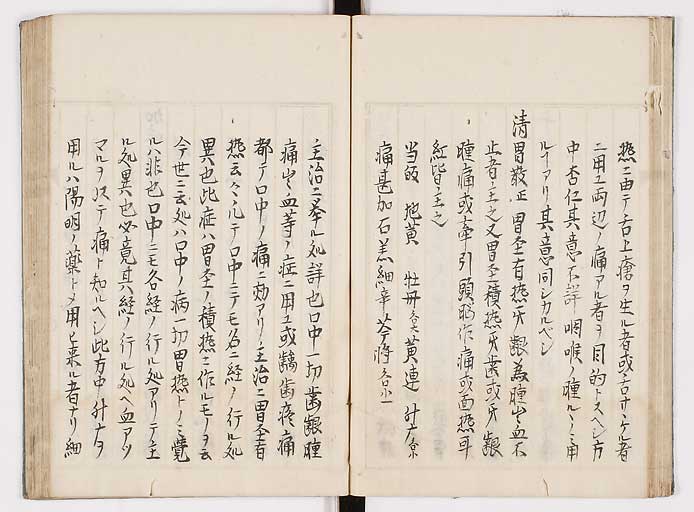 熱ニ由テ舌上瘡ヲ生ル者或舌サケル者
ニ用ユ両辺ノ痛アル者ヲ目的トスヘシ方
中杏仁其意不詳咽喉ノ腫ルヽニ用
ルヿアリ其意同シカルベシ
清胃散正胃経有熱牙齦為腫出血不
止者主之又胃経積熱牙歯或牙齦
腫痛或牽引頭脳作痛或面熱耳
紅皆主之
当皈 地黄 牡丹各大 黄連 升ナ
痛甚加石羔細辛 各小一
主治ニ挙ル処詳也口中一切歯齦腫
痛出血等ノ症ニ用ユ或齲歯疼痛
都テ口中ノ痛ニ効アリ主治ニ胃経有
熱云々ルテ口中ニテモ各ニ経ノ行ル処
異也此症ハ胃経ノ積熱ニ作ルモノヲ云
今世ニ云処ハ口中ノ病一切胃熱トノミ覚
ルハ非也口中ニモ各経ノ行ル処アリテ主
ル処異也必竟其経ノ行ル処ヘ血アツ
マルヲ以テ痛ト知ルヘシ此方中升ナヲ
用ルハ陽明ノ薬トメ用ヒ来ル者ナリ細